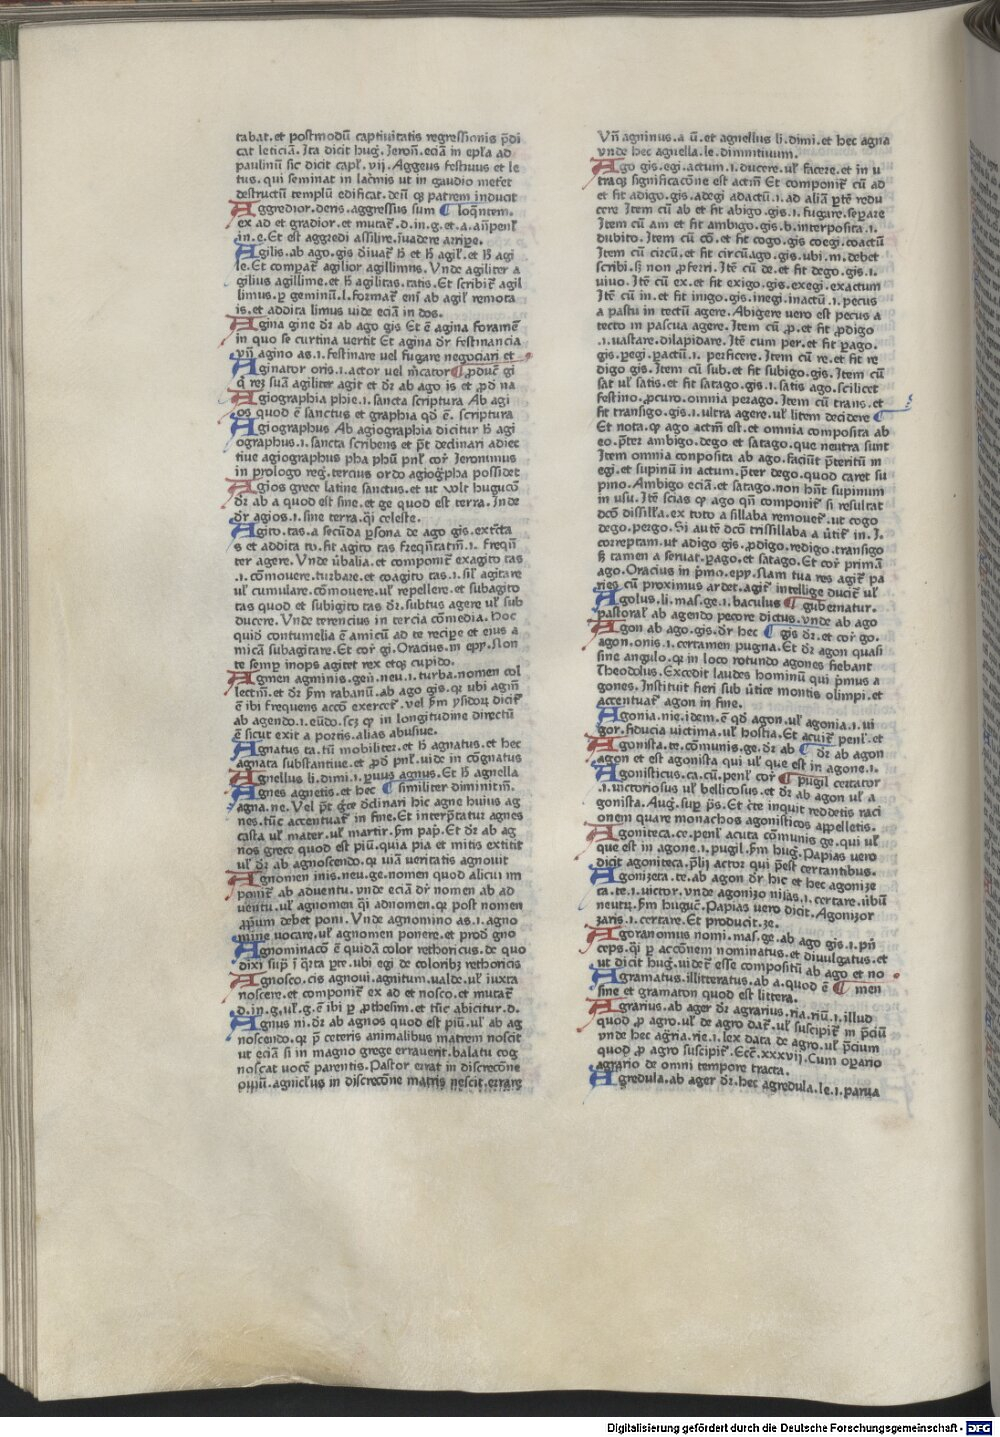 tabat.et postmodū captivitatis regressionis p̄di
cat leticiā. Ita dicit hug̃. Jeron̄.eciā in ep̄la ad
paulinū sic dicit capl̄.vij. Aggeus festiuus et le
tus.qui seminat in lac̄mis ut in gaudio metet
destructū templū edificat.deū q̄ patrem inducit
Aggredior.deris.aggressus sum ¶ loq̄ntem.
ex ad et gradior.et mutat᷑.d.in.g.et.a.an̄penl̄
in.e.Et est aggredi assilire.īuadere arripe.
Agilis.ab ago.gis d̄iuat᷑ h̄ et h̄ agil̄.et h̄ agi
le.Et compat᷑ agilior agillimus. Vnde agiliter a
gilius agillime.et h̄ agilitas.tatis. Et scribit᷑ agil
limus.ꝑ geminū.l.format᷑ eī ab agil̄ remota
is.et addita limus uide eciā in dos.
Agina gine dr̄ ab ago gis Et ē agina foramē
in quo se curtina vertit Et agina dr̄ festinancia
vn̄ agino as.i.festinare vel fugare negociari et
Aginator oris.i.actor vel m̄cator ¶ ꝓduc̄ gi
q̄ reȝ suā agiliter agit et dr̄ ab ago is et ꝓd na
Agiographia phie.i.sancta scriptura Ab agi
os quod ē sanctus et graphia qd̄ ē. scriptura
Agiographus Ab agiographia dicitur h̄ agi
ographus.i.sancta scribens et pt̄ declinari adiec
tiue agiographus pha phū pnl̄ cor̄ Jeronimus
in prologo reg̃.tercius ordo agiog̃pha possidet
Agios grece latine sanctus.et ut volt huguco
dr̄ ab a quod est sine.et ge quod est terra. Inde
dr̄ agios.i.sine terra.q̄i celeste.
Agito.tas.a secūda ꝑsona de ago gis.ext̄cta
s et addita to.fit agito tas freqn̄tatm̄.i. freqn̄
ter agere. Vnde ūbalia.et componit᷑ exagito tas
.i.cōmouere.turbare.et coagito tas.i.sil̄ agitare
ul̄ cumulare.cōmouere.ul̄ repellere.et subagito
tas quod et subigito tas dr̄.subtus agere ul̄ sub
ducere. Vnde terencius in tercia cōmedia. Hoc
quid contumelia ē amicū ad te recipe et eius a
micā subagitare. Et cor̄ gi. Oracius.in epy. Non
te semp inops agitet rex etqȝ cupido.
Agmen agminis.gen̄.neu.i.turba.nomen col
lectm̄.et dr̄ ẜm rabanū.ab ago gis.q̄ ubi agm̄
ē ibi frequens acco exercet᷑.vel ẜm ysidorū dicit᷑
ab agendo.i.eūdo.scȝ ꝙ in longitudine directū
ē sicut exit a portis.alias abusiue.
Agnatus ta.tū mobiliter.et h̄ agnatus.et hec
agnata substantiue.et ꝓd pnl̄.uide in cōgnatus
Agnellus li.dimi.i.ꝑuus agnus. Et h̄ agnella
Agnes agnetis.et hec ¶ similiter diminitm̄.
agna.ne. Vel pt̄ g̃ce d̄clinari hic agne huius ag
nes.tūc accentuat᷑ in fine. Et interp̄tatur agnes
casta ul̄ mater.ul̄ martir.ẜm pap̄. Et dr̄ ab ag
nos grece quod est piū.quia pia et mitis extitit
ul̄ dr̄ ab agnoscendo.q̄ uiā veritatis agnouit
Agnomen inis.neu.ge.nomen quod alicui im
ponit᷑ ab adventu.vnde eciā dr̄ nomen ab ad
ventu.ul̄ agnomen q̄i adnomen.q̄ post nomen
ꝓpium debet poni. Vnde agnomino as.i.agno
mine vocare.ul̄ agnomen ponere.et prod gno
Agnominacō ē quidā color rethoricus.de quo
dixi sup̄ ī q̄rta ꝑte.ubi egi de coloribȝ rethoricis
Agnosco.cis agnoui.agnitum.ualde.ul̄ iuxta
noscere.et componit᷑ ex ad et nosco.et mutat᷑
.d.in.g.ul̄.g.ē ibi ꝑ ꝓthesim.et tūc abicitur.d.
Agnus ni.dr̄ ab agnos quod est piū.ul̄ ab ag
noscendo.q̄ p̄ ceteris animalibus matrem noscit
ut eciā si in magno grege erraverit.balatu cog
noscat vocē parentis. Pastor errat in discrecōne
ouiū.agniclus in discrecōne matris nescit errare
Vn̄ agninus.a ū.et agnellus li.dimi.et hec agna
vnde hec agnella.le.diminitiuum.
Ago gis.egi.actum.i.ducere.ul̄ facere.et in u
traqȝ significacōne est actm̄ Et componit᷑ cū ad
et fit adigo.gis.adegi adactū.i.ad aliā ꝑtē redu
cere Item cū ab et fit abigo.gis.i.fugare.seꝑare
Item cū am et fit ambigo.gis.b.interposita.i.
dubito. Item cū cō.et fit cogo.gis coegi.coactū
Item cū circū.et fit circūago.gis.ubi.m.debet
scribi.sȝ non ꝓferri. Itē cū de.et fit dego.gis.i.
uiuo. Itē cū ex.et fit exigo.gis.exegi.exactum
Itē cū in.et fit inigo.gis.inegi.inactū.i.pecus
a pastu in tectū agere. Abigere uero est pecus a
tecto in pascua agere. Item cū ꝓ.et fit ꝓdigo
.i.uastare.dilapidare. Itē cum per.et fit ꝑago.
gis.ꝑegi.ꝑactū.i. perficere. Item cū re.et fit re
digo gis. Item cū sub.et fit subigo.gis. Item cū
sat ul̄ satis.et fit satago.gis.i.satis ago.scilicet
festino.ꝓcuro.omnia peragо. Item cū trans.et
fit transigo.gis.i.ultra agere.ul̄ litem decidere ¶
Et nota.ꝙ ago actm̄ est.et omnia composita ab
eo.p̄ter ambigo.dego et satago.que neutra sunt
Item omnia conposita ab ago.faciūt p̄teritū in
egi.et supinū in actum.p̄ter dego.quod caret su
pino. Ambigo eciā.et satago.non hn̄t supinum
in usu. Itē scias ꝙ ago qn̄ componit᷑ si resultat
dcō dissill̄a.ex toto a sillaba removet᷑.ut cogo
dego.pergo. Si autē dcō trissillaba a ūtit᷑ in. I.
correptam.ut adigo gis.ꝓdigo.redigo.transigo
sȝ tamen a seruat.ꝑago.et satago. Et cor̄ primā
ago. Oracius in p̄mo.epy. Nam tua res agit᷑ pa
ries cū proximus ardet.agit᷑ intellige ducit᷑ ul̄
Agolus.li.mas.ge.i.baculus ¶ gubernatur.
pastoral̄ ab agendo pecore dictus.vnde ab ago
Agon ab ago.gis.dr̄ hec ¶ gis dr̄.et cor̄ go.
agon.onis.i.certamen pugna. Et dr̄ agon quasi
sine angulo.q̄ in loco rotundo agones fiebant
Theodolus. Excedit laudes hominū qui p̄mus a
gones. Instituit fieri sub ūtice montis olimpi.et
accentuat᷑ agon in fine.
Agonia.nie.idem.ē qd̄ agon.ul̄ agonia.i.ui
gor.fiducia uictima.ul̄ hostia. Et acuit᷑ penl̄.et
Agonista.te.cōmunis.ge.dr̄ ab ¶ dr̄ ab agon
agon et est agonista qui ul̄ que est in agone.i.
Agonisticus.ca.cū.penl̄ cor̄ ¶ pugil certator
.i.uictoriosus ul̄ bellicosus.et dr̄ ab agon ul̄ a
gonista. Aug̃.sup p̄s. Et c̄te inquit reddetis raci
onem quare monachos agonisticos appelletis.
Agoniteca.ce.penl̄ acuta cōmunis ge.qui ul̄
que est in agone.i.pugil.ẜm hug̃. Papias uero
dicit agoniteca.p̄lij actor qui p̄est certantibus.
Agonizeta.te.ab agon dr̄ hic et hec agonize
ta.te.i.uictor.vnde agonizo nīsās.i.certare.ūbū
neutȝ.ẜm hugut̄. Papias uero dicit. Agonizor
zaris.i.certare. Et producit.ze.
Agoranomus nomi.mas.ge.ab ago gis.i.p̄n
ceps.q̄i ꝑ accōnem nominatus.et diuulgatus.et
ut dicit hug̃.uidet᷑ esse compositū ab ago et no
Agramatus.illitteratus.ab a.quod ē ¶ men
sine et gramaton quod est littera.
Agrarius.ab ager dr̄ agrarius.ria.riū.i.illud
quod ꝓ agro.ul̄ de agro dat᷑.ul̄ suscipit᷑ in p̄ciū
vnde hec ag̃ria.rie.i.lex data de agro.ul̄ p̄cium
quod ꝓ agro suscipit᷑. Eccī.xxxvij. Cum oꝑario
agrario de omni tempore tracta.
Agredula.ab ager dr̄.hec agredula.le.i.parua
Digitalisierung gefördert durch die Deutsche Forschungsgemeinschaft - DFG